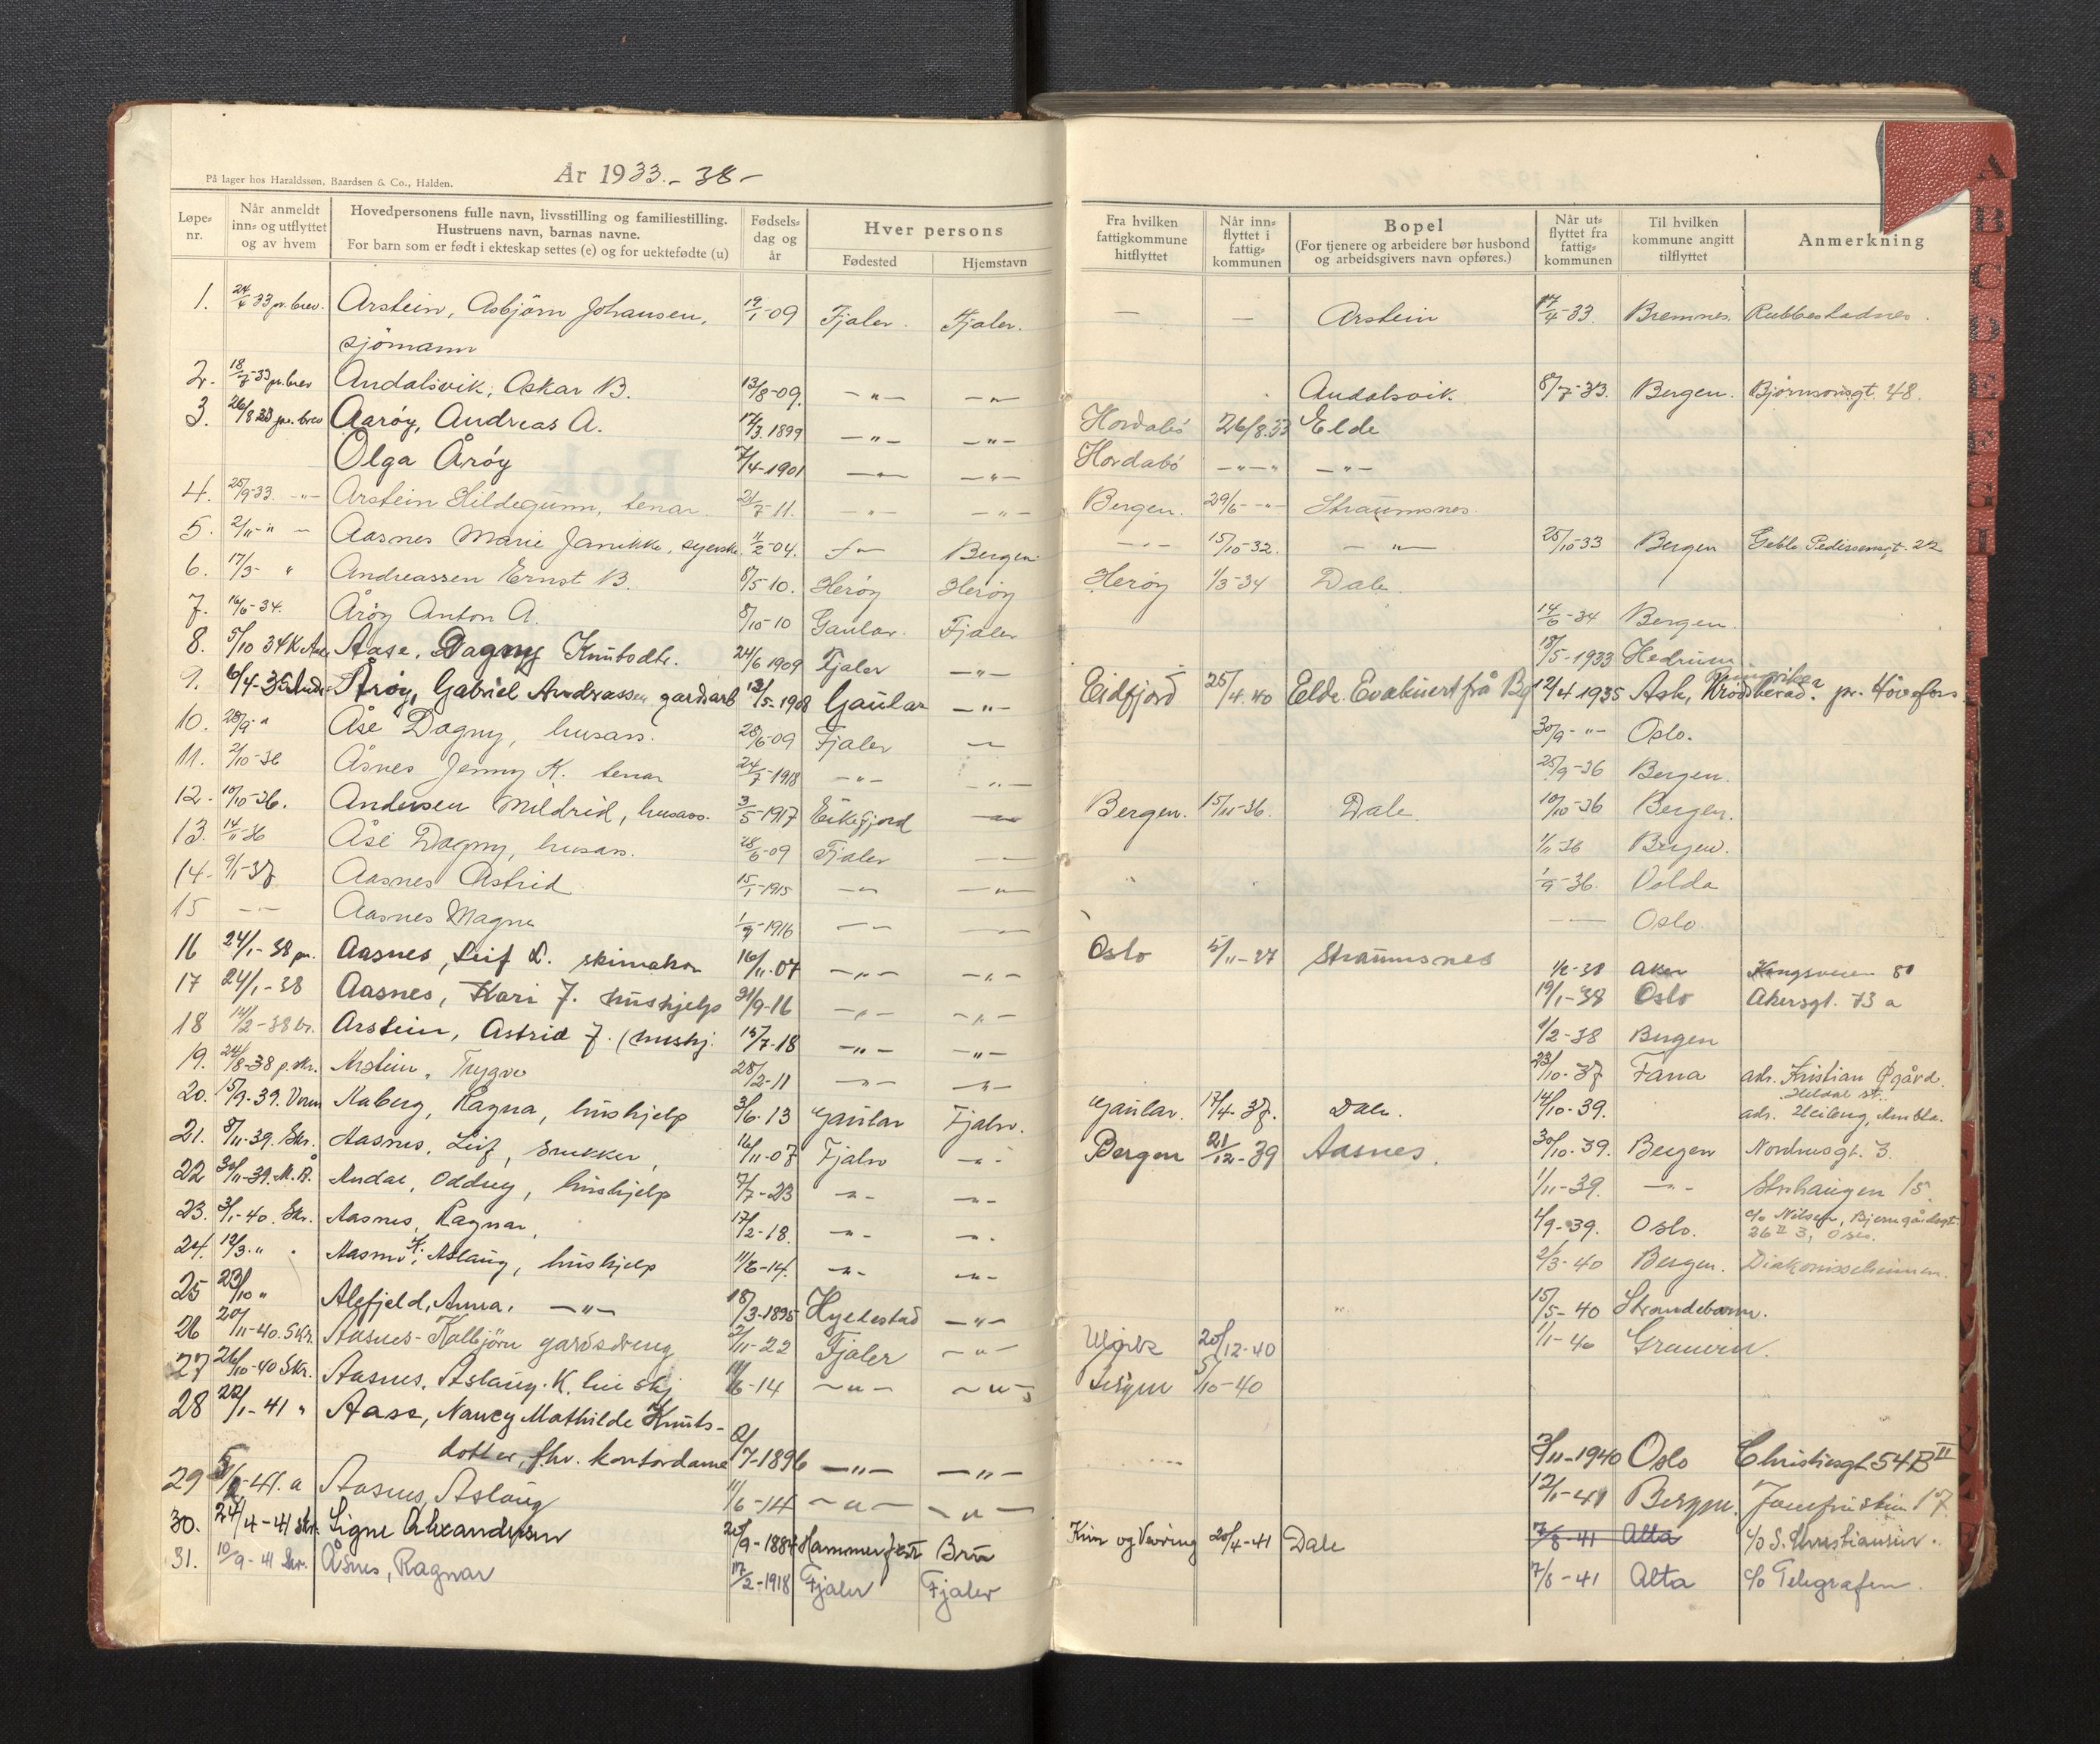 År 1933.-38-
På lager hos Haraldssøn, Baardsen & Co., Halden.
Løpe-nr. | Når anmeldt inn- og utflyttet og av hvem | Hovedpersonens fulle navn, livsstilling og familiestilling. Hustruens navn, barnas navne. For barn som er født i ekteskap settes (e) og for uektefødte (u) | Fødsels-dag og år | Hver persons Fødested | Hjemstavn | Fra hvilken fattigkommune hitflyttet | Når inn-flyttet i fattig-kommunen | Bopel (For tjenere og arbeidere bør husbond og arbeidsgivers navn opføres.) | Når ut-flyttet fra fattig-kommunen | Til hvilken kommune angitt tilflyttet | Anmerkning
1. 24/4-33 pr. brev. Arstein, Asbjörn Johansen, 19/1-09 Fjaler. Fjaler. — — Arstein 17/4-33. Bremnes. Rubbestadnes.
sjömann
2. 18/7-33 pr. brev Andalsvik, Oskar B. 13/8-09. —"— —"— Andalsvik. 8/7-33. Bergen. Björnsonsgt. 48.
3. 26/8 33 pr. brev Aaröy, Andreas A. 17/3.1899 —"— —"— Hordabö 26/8.33 Elde
Olga Åröy 7/4-1901 —"— —"— Hordabö —"—"— —"—
4. 25/9-33. —"— Arstein Hildegunn, tenar. 21/7-11. —"— —"— Bergen. 29/6-—"— Straumsnes.
5. 2/11-"— Aasnes Marie Janikke, syerske 11/2-04. —"— Bergen. —"— 15/10-32. —"— 25/10-33 Bergen Geble Pedersensgt. 22
6. 17/3- " Andreassen Ernst B. 8/5-10. Heröy Heröy Heröy 1/3-34 Dale
7. 16/6-34. Åröy Anton A. 8/10-10 Gaular. Fjaler 14/6-34 Bergen.
8. 5/10 34 K Aase Aase, Dagny Knutsdtr. 24/6 1909 Fjaler —"— 18/5-1933 Hedrum
9. 6/4-35 Åröy, Gabriel Andreassen gardsarb 13/5-1908 Gaular —"— Eidfjord 25/4.40 Elde. Evakuert frå Bg 12/4 1935 Ask, Krödsherad. pr. Hönefoss
10. 28/9-" Åse Dagny, husass. 28/6-09 Fjaler —"— 30/9-"— Oslo.
11. 2/10-36 Åsnes Jenny K. tenar 24/7-1918 —"— —"— 25/9-36 Bergen.
12. 10/10-36. Andersen Mildrid, husass. 3/5-1917 Eikefjord —"— Bergen. 15/11-36. Dale 10/10-36 Bergen.
13. 14/11-36 Åse Dagny, husass. 28/6-09 Fjaler —"— 1/11-36 Bergen.
14. 9/1-37 Aasnes Astrid 15/1-1915 —"— —"— 1/9-36. Volda
15 —"— Aasnes Magne 1/9-1916 —"— —"— —"— Oslo.
16 24/1-38 pr. Aasnes, Leif L. skimaker 16/11-07 —"— —"— Oslo 5/11-37 Straumsnes 1/2-38 Aker Kongsveien 80
17 24/1-38 Aasnes, Kari J. hushjelp 21/9-16 —"— —"— 19/1-38 Oslo Akersgt. 73 a
18 14/2-38 br. Arstein, Astrid J. (hushj. 15/7-18 —"— —"— 1/2-38 Bergen
19. 24/8-38 p. skr. Arstein, Trygve 28/2-11 —"— —"— 23/10-37 Fana adr. Kristian Øgård.
Heldal st.
20. 15/9-39. Aaberg, Ragna, hushjelp 3/6-13 Gaular Fjaler. Gaular. 17/4-37. Dale. 14/10-39. adr. Heiberg, Ambla.
21. 8/11-39. Skr. Aasnes, Leif, snekker, 16/11-07 Fjaler —"— Bergen 21/12-39 Aasnes. 30/10-39. Bergen Nordnesgt. 3.
22 30/11-39. M.Å. Andal, Oddny, hushjelp 7/7-23 —"— —"— 1/11-39. —"— 15.
23. 3/1-40. Skr. Aasnes, Ragnar, 17/2-18. —"— —"— 1/9-39. Oslo. c/o Nilsen, Bjerregårdsgt.
26 II 3, Oslo.
24. 12/3." Aasnes, Aslaug K., hushjelp 11/6-14. —"— —"— 2/3-40 Bergen. Diakonisseheimen.
25 23/10 " Alefjeld, Anna, —"— 18/3-1895 Hyllestad —"— 15/5-40 Strandebarm.
26 20/11-40. Skr. Aasnes-Kolbjörn gardsdreng 2/11-22 Fjaler —"— 20/12-40 1/1-40 Granvin.
27 26/10-40 Skr. Aasnes. Aslaug. K. hushj 11/6-14 —"— —"— Bergen 5/10-40
28 22/1-41 " Aase, Nancy Mathilde Knuts-
dotter, fhv. kontordame 2/7-1896 —"— —"— 2/11-1940 Oslo Christiesgt. 54 B II
29 5/2-41. a Aasnes, Aslaug 11/6-14 —"— —"— 12/1-41 Bergen. 17
30. 24/4-41 skr. Signe Alexandersen 25/9-1884 Hammerfest Bru Kinn og Vevring 20/4-41 Dale 7/8-41 Alta c/o S. Christiansen.
31. 10/9-41 Skr. Åsnes, Ragnar 17/2-1918 Fjaler Fjaler 7/8-41 Alta c/o Telegrafen.
A
B
C
D
E
F
G
H
I